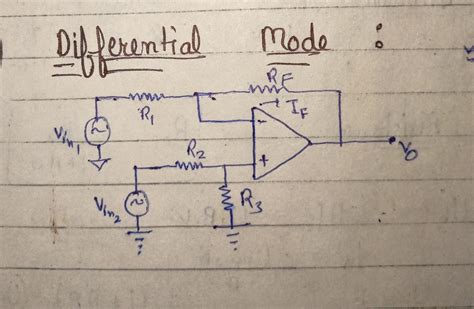 Differential Mode :
RF
R1
IF
-
Vin1
R2
+
Vo
Vin2
R3